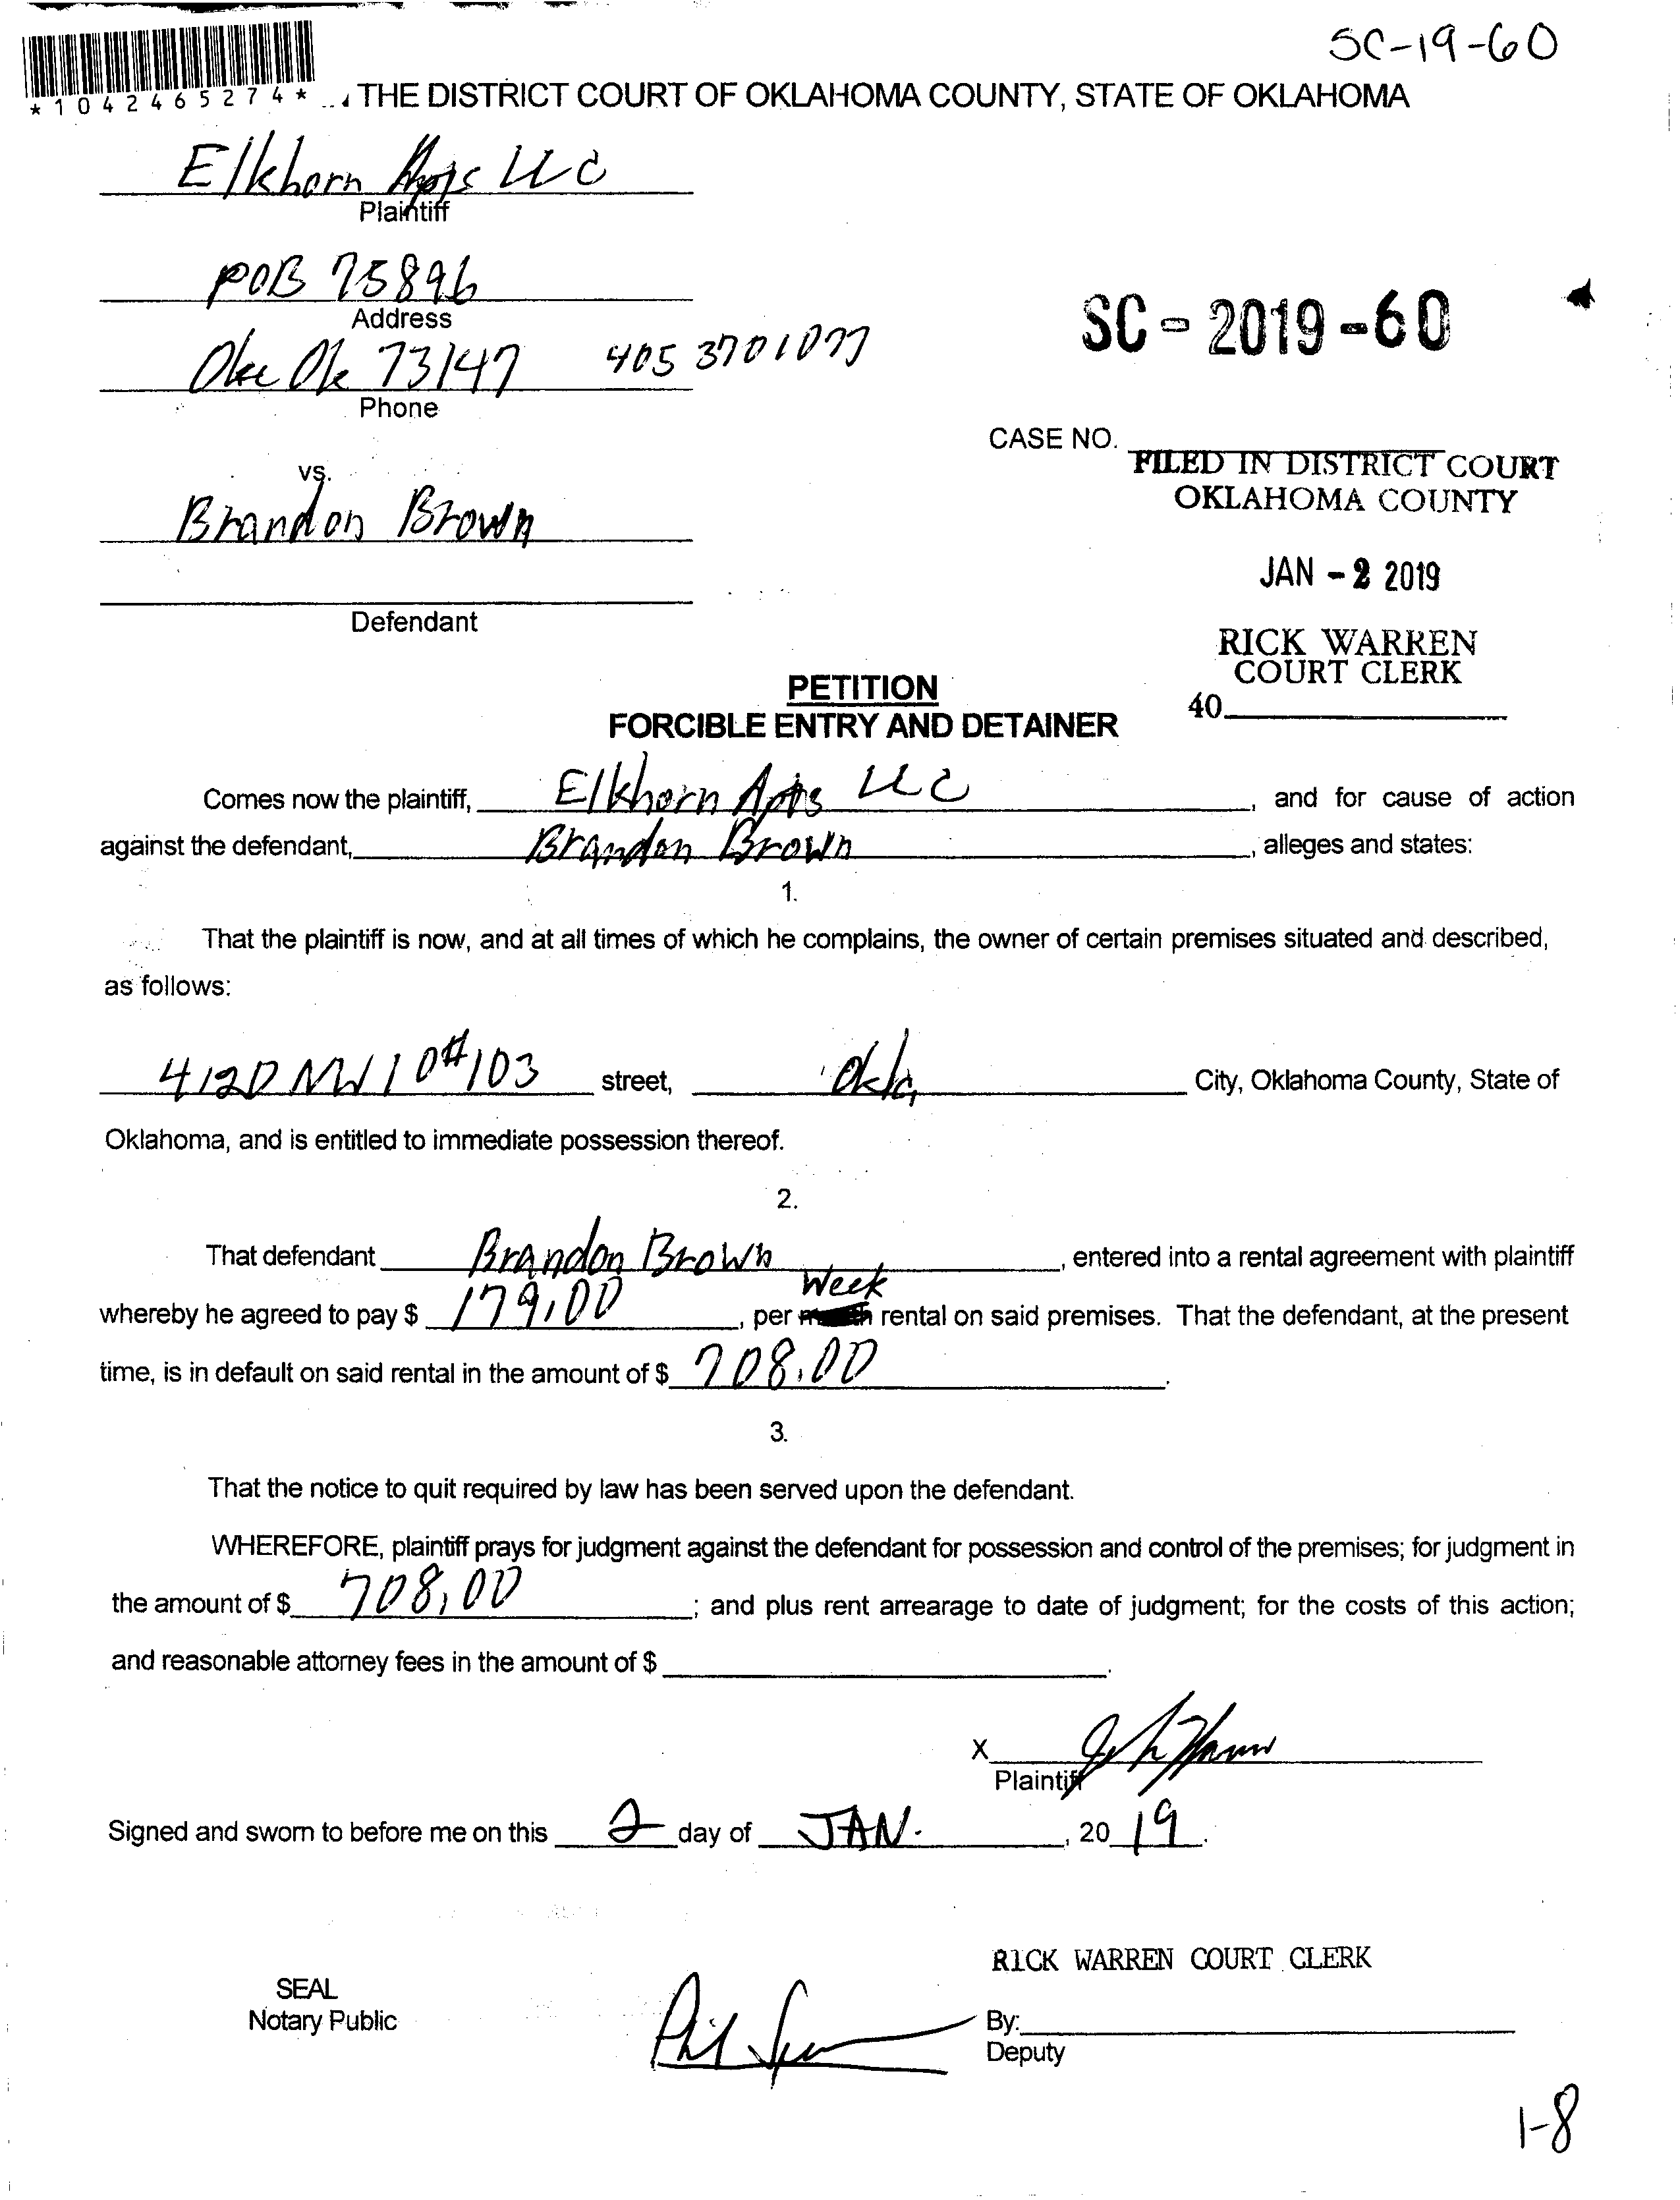 SC-19-60
*1042465274* THE DISTRICT COURT OF OKLAHOMA COUNTY, STATE OF OKLAHOMA
Elkhorn Apts LLC
Plaintiff
POB 75896
Address
Okc Ok 73147 405 3701077
Phone
SC-2019-60
CASE NO.
FILED IN DISTRICT COURT
OKLAHOMA COUNTY
vs.
Brandon Brown
JAN -2 2019
Defendant
RICK WARREN
COURT CLERK
40
PETITION
FORCIBLE ENTRY AND DETAINER
Comes now the plaintiff, Elkhorn Apts LLC, and for cause of action
against the defendant, Brandon Brown, alleges and states:
1.
That the plaintiff is now, and at all times of which he complains, the owner of certain premises situated and described,
as follows:
4120 NW 10 #103 street, Okla, City, Oklahoma County, State of
Oklahoma, and is entitled to immediate possession thereof.
2.
That defendant Brandon Brown, entered into a rental agreement with plaintiff
Week
whereby he agreed to pay $ 179.00, per rental on said premises. That the defendant, at the present
time, is in default on said rental in the amount of $ 708.00.
3.
That the notice to quit required by law has been served upon the defendant.
WHEREFORE, plaintiff prays for judgment against the defendant for possession and control of the premises; for judgment in
the amount of $ 708.00; and plus rent arrearage to date of judgment; for the costs of this action;
and reasonable attorney fees in the amount of $.
X
Plaintiff
Signed and sworn to before me on this 2 day of JAN., 20 19.
RICK WARREN COURT CLERK
SEAL
Notary Public
By:
Deputy
1-8